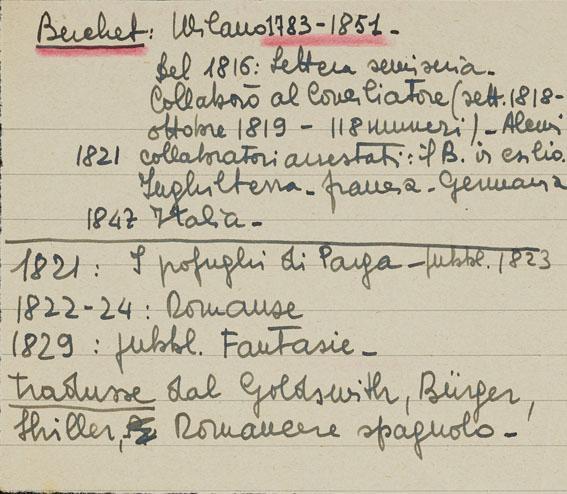 Berchet: Milano 1783-1851.
Del 1816: Lettera semiseria.
Collaborò al Conciliatore (sett. 1818-
ottobre 1819 - 118 numeri). Alcuni
1821 collaboratori arrestati: il B. in esilio.
Inghilterra - Francia - Germania
1847 Italia.
1821: I profughi di Parga - pubbl. 1823
1822-24: Romanze
1829: pubbl. Fantasie.
tradusse dal Goldswith, Bürger,
Shiller, Romancere spagnolo.